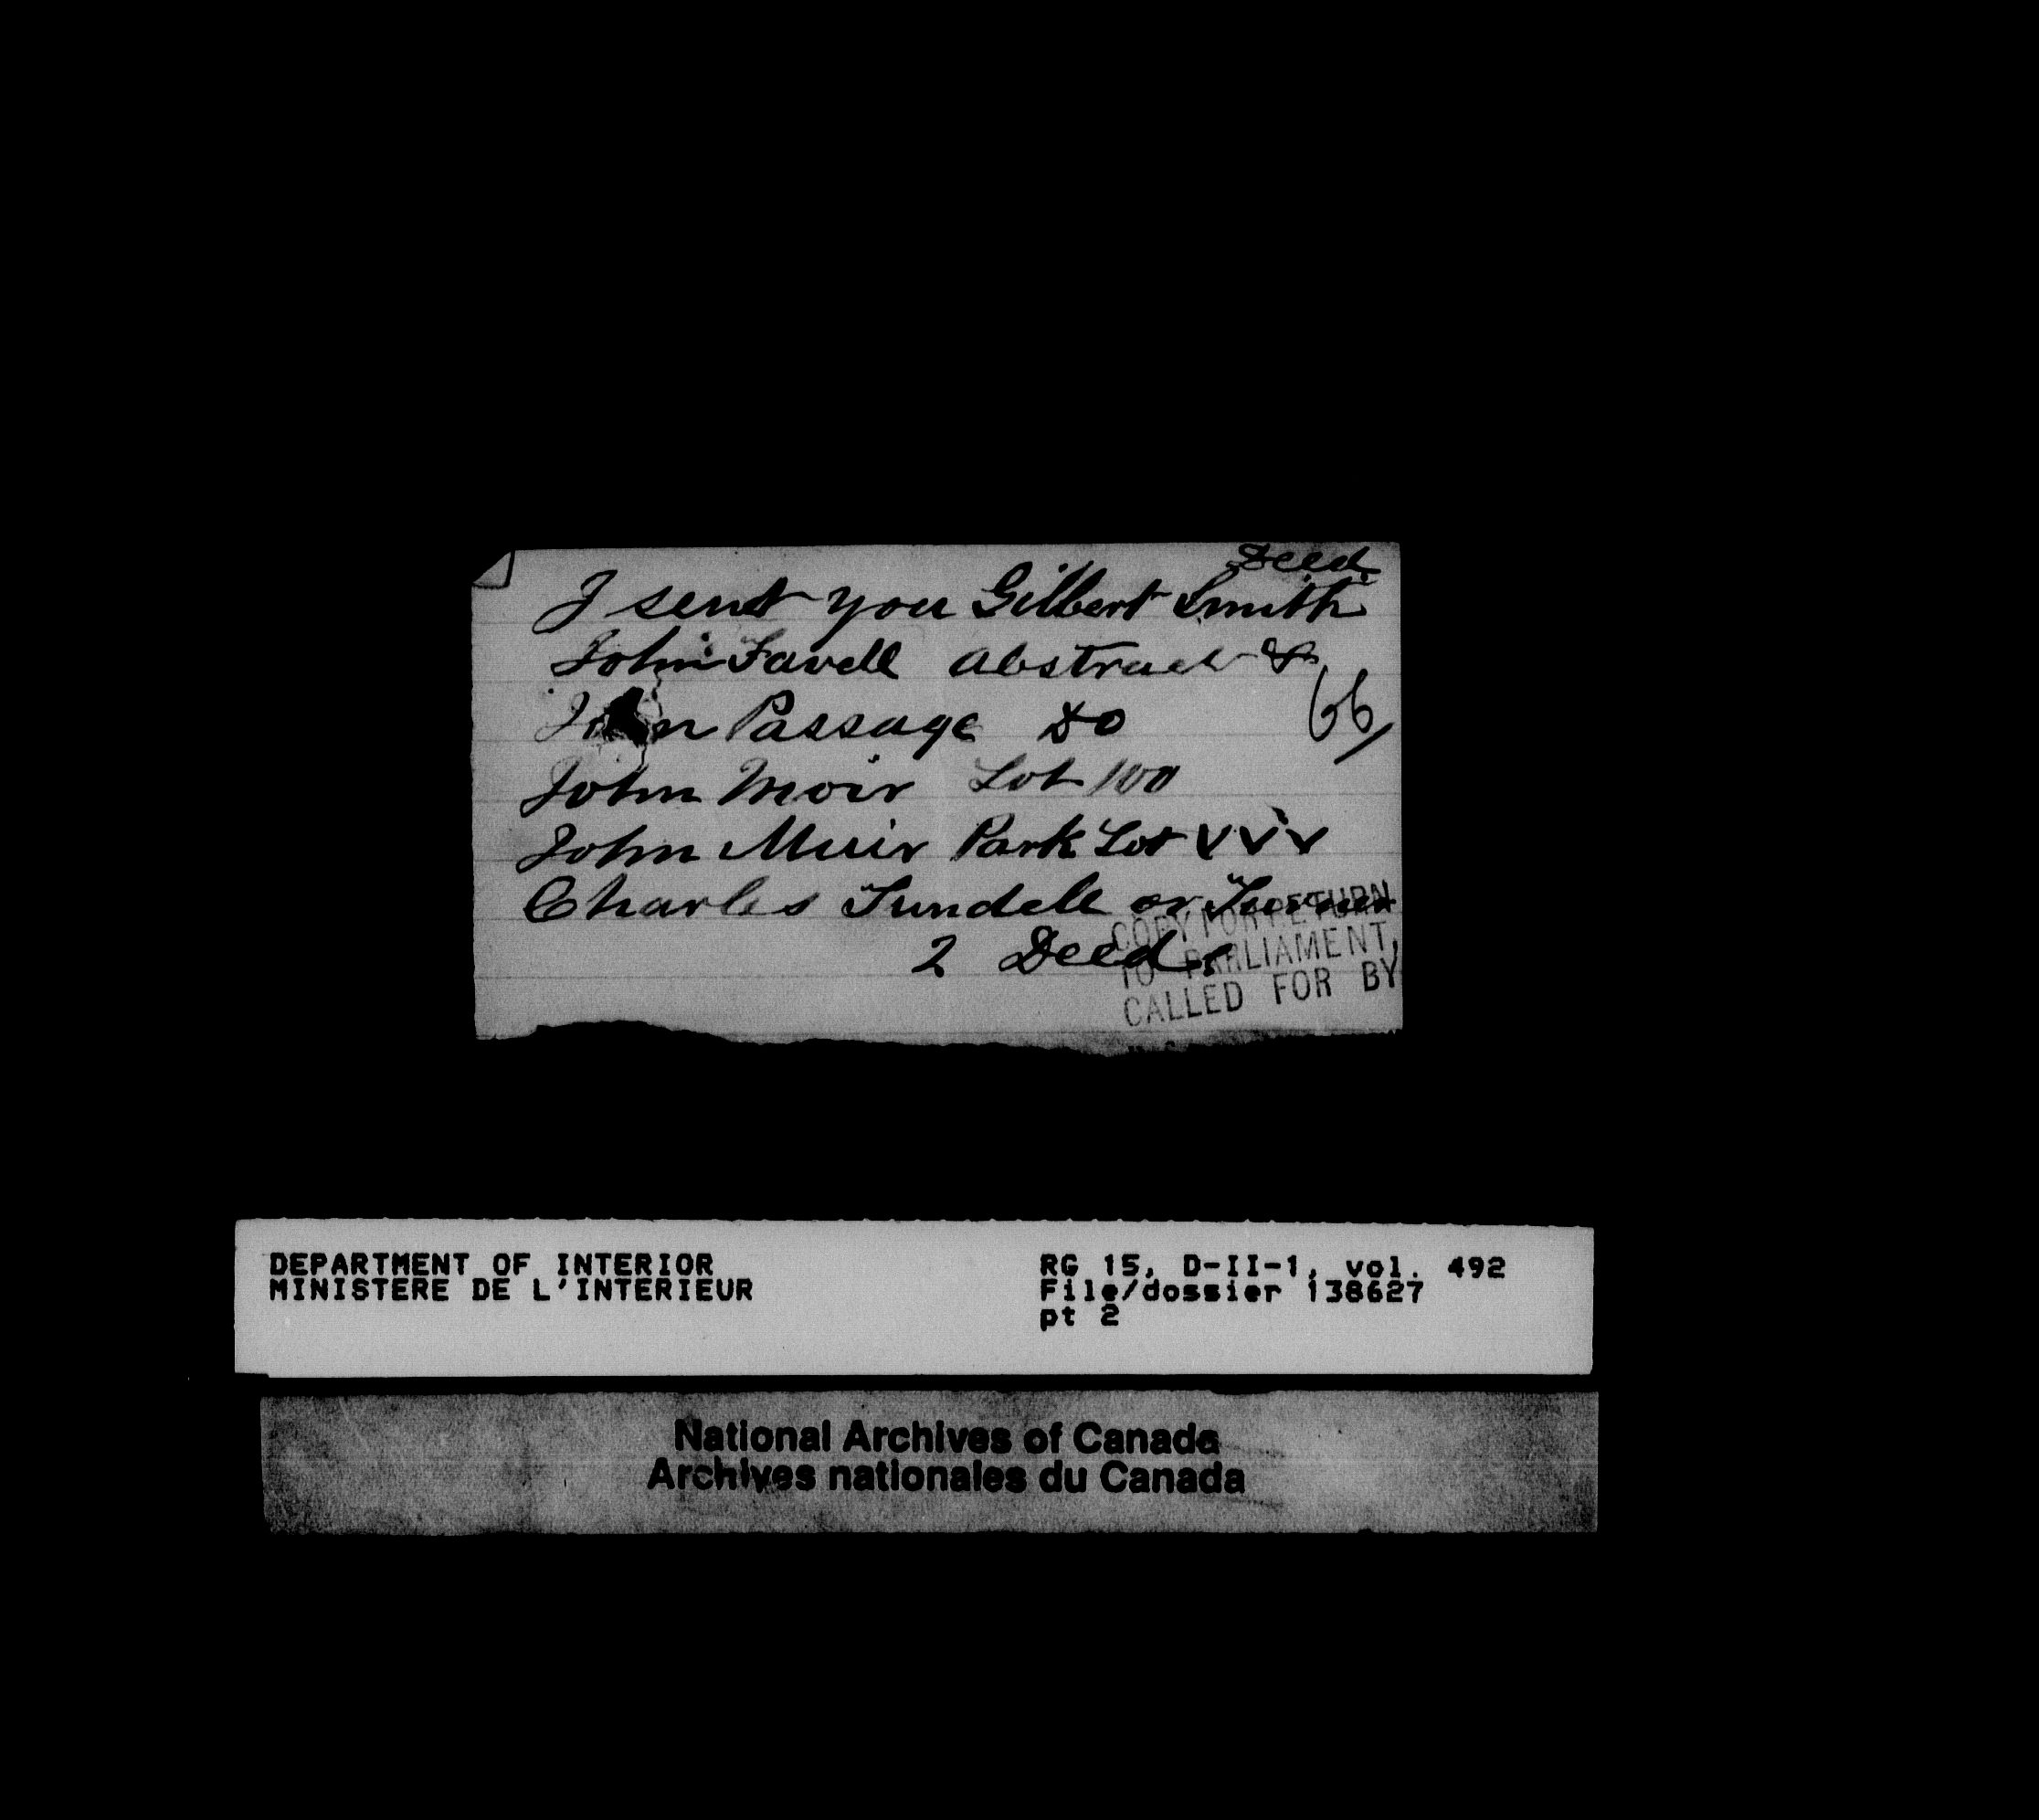 Deed
I sent you Gilbert Smith
John Favell Abstract &
John Passage Do
66/
John Moir Lot 100
John Muir Park Lot V V V
Charles Tundell or
2 Deeds
COPY FOR RETURN
TO PARLIAMENT,
CALLED FOR BY
DEPARTMENT OF INTERIOR
MINISTERE DE L'INTERIEUR
RG 15, D-II-1, vol. 492
File/dossier 138627
pt 2
National Archives of Canada
Archives nationales du Canada